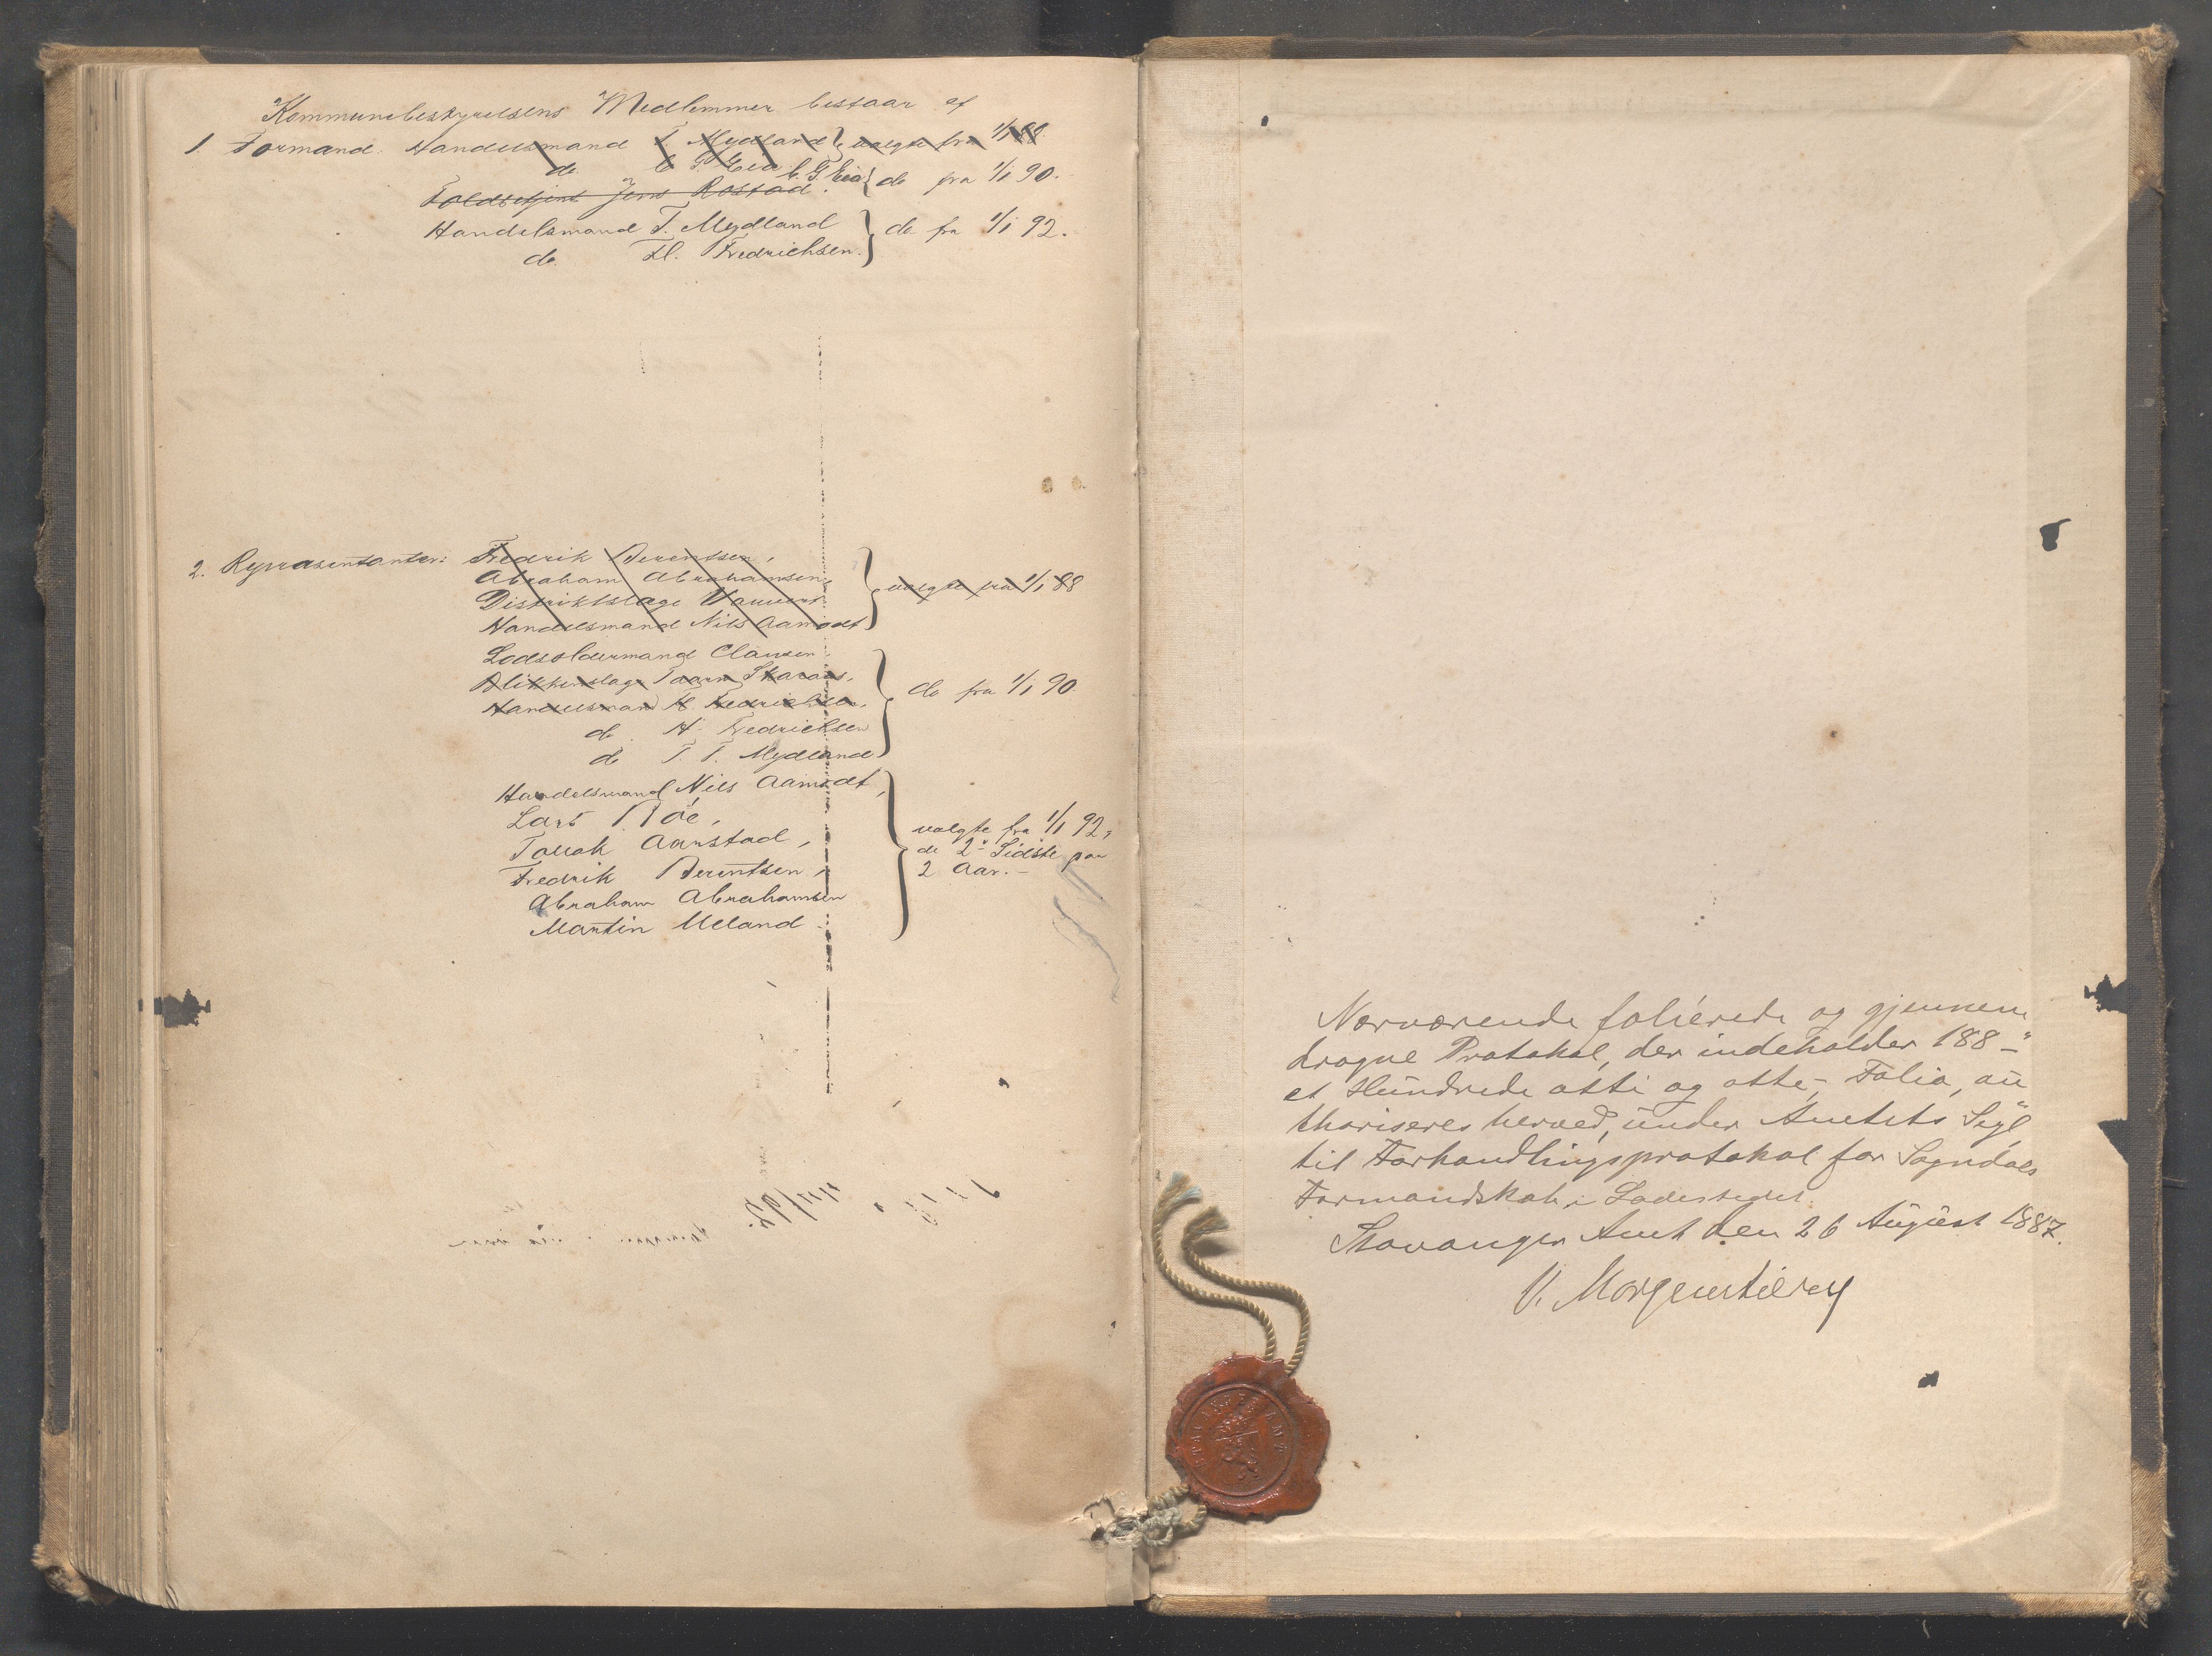 Kommunebestyrelsens Medlemmer bestaar af
1. Formænd. Handelsmand T. Mydland } valgte fra 1/1 88.
do. C. G. Eia
Toldbetjent Jens Rostad. C. G. Eia } do fra 1/1 90.
Handelsmand T. Mydland } do. fra 1/1 92.
do. H. Fredrichsen.
2. Repræsentanter: Fredrik Berentsen,
Abraham Abrahamsen,
Distriktslæge } valgte fra 1/1 88
Handelsmand Nils Aamodt
Lodsoldermand Clausen
Blikkenslager
Handelsmand H. Fredrichsen, } do fra 1/1 90
do. H. Fredrichsen
do T. T. Mydland
Handelsmand Nils Aamodt,
Lars Roe,
Tollak Aarstad, } valgte fra 1/1 92,
Fredrik Berentsen, de 2 Sidste paa
Abraham Abrahamsen 2 Aar. -
Martin Meland
Nærværende folierede og gjennem
dragne Protokol, der indeholder 188 -
et Hundrede otti og otte, - Folia, au
thoriseres herved, under Amtets Segl
til Forhandlingsprotokol for Sogndals
Formandskab i Ladestedet.
Stavanger Amt den 26 August 1887.
V. Morgenstierne